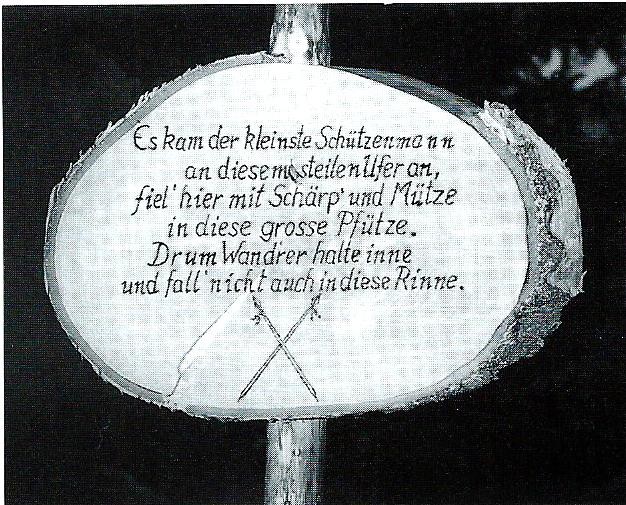 Es kam der kleinste Schützenmann
an diesem steilen Ufer an,
fiel' hier mit Schärp' und Mütze
in diese grosse Pfütze.
Drum Wandrer halte inne
und fall' nicht auch in diese Rinne.